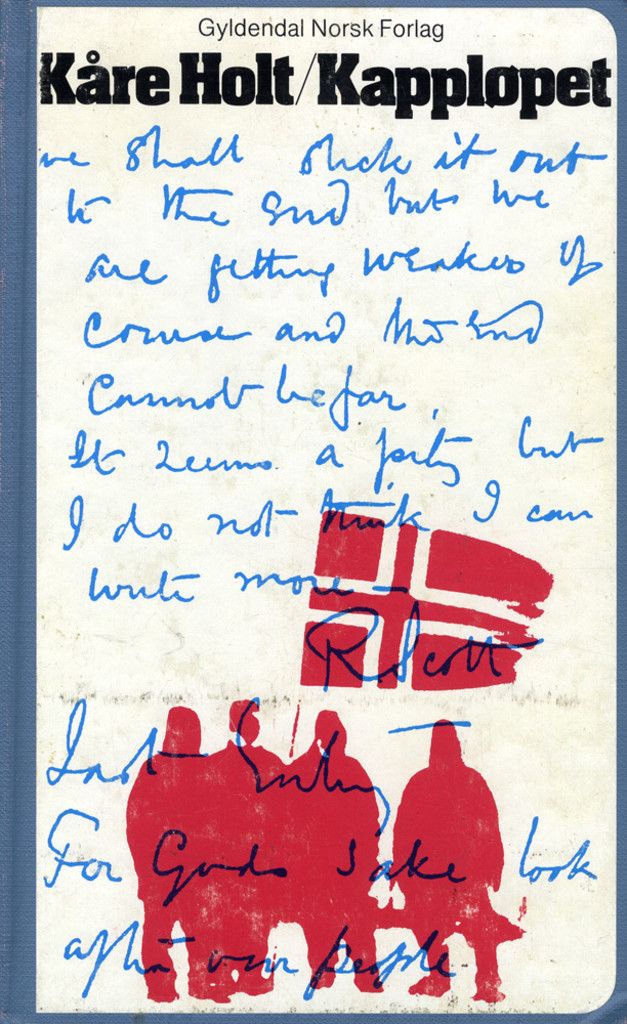 Gyldendal Norsk Forlag
Kåre Holt/Kappløpet
we shall stick it out
to the end but we
are getting weaker of
course and the end
cannot be far.
It seems a pity but
I do not think I can
write more —
R. Scott
Last Entry
For Gods sake look
after our people